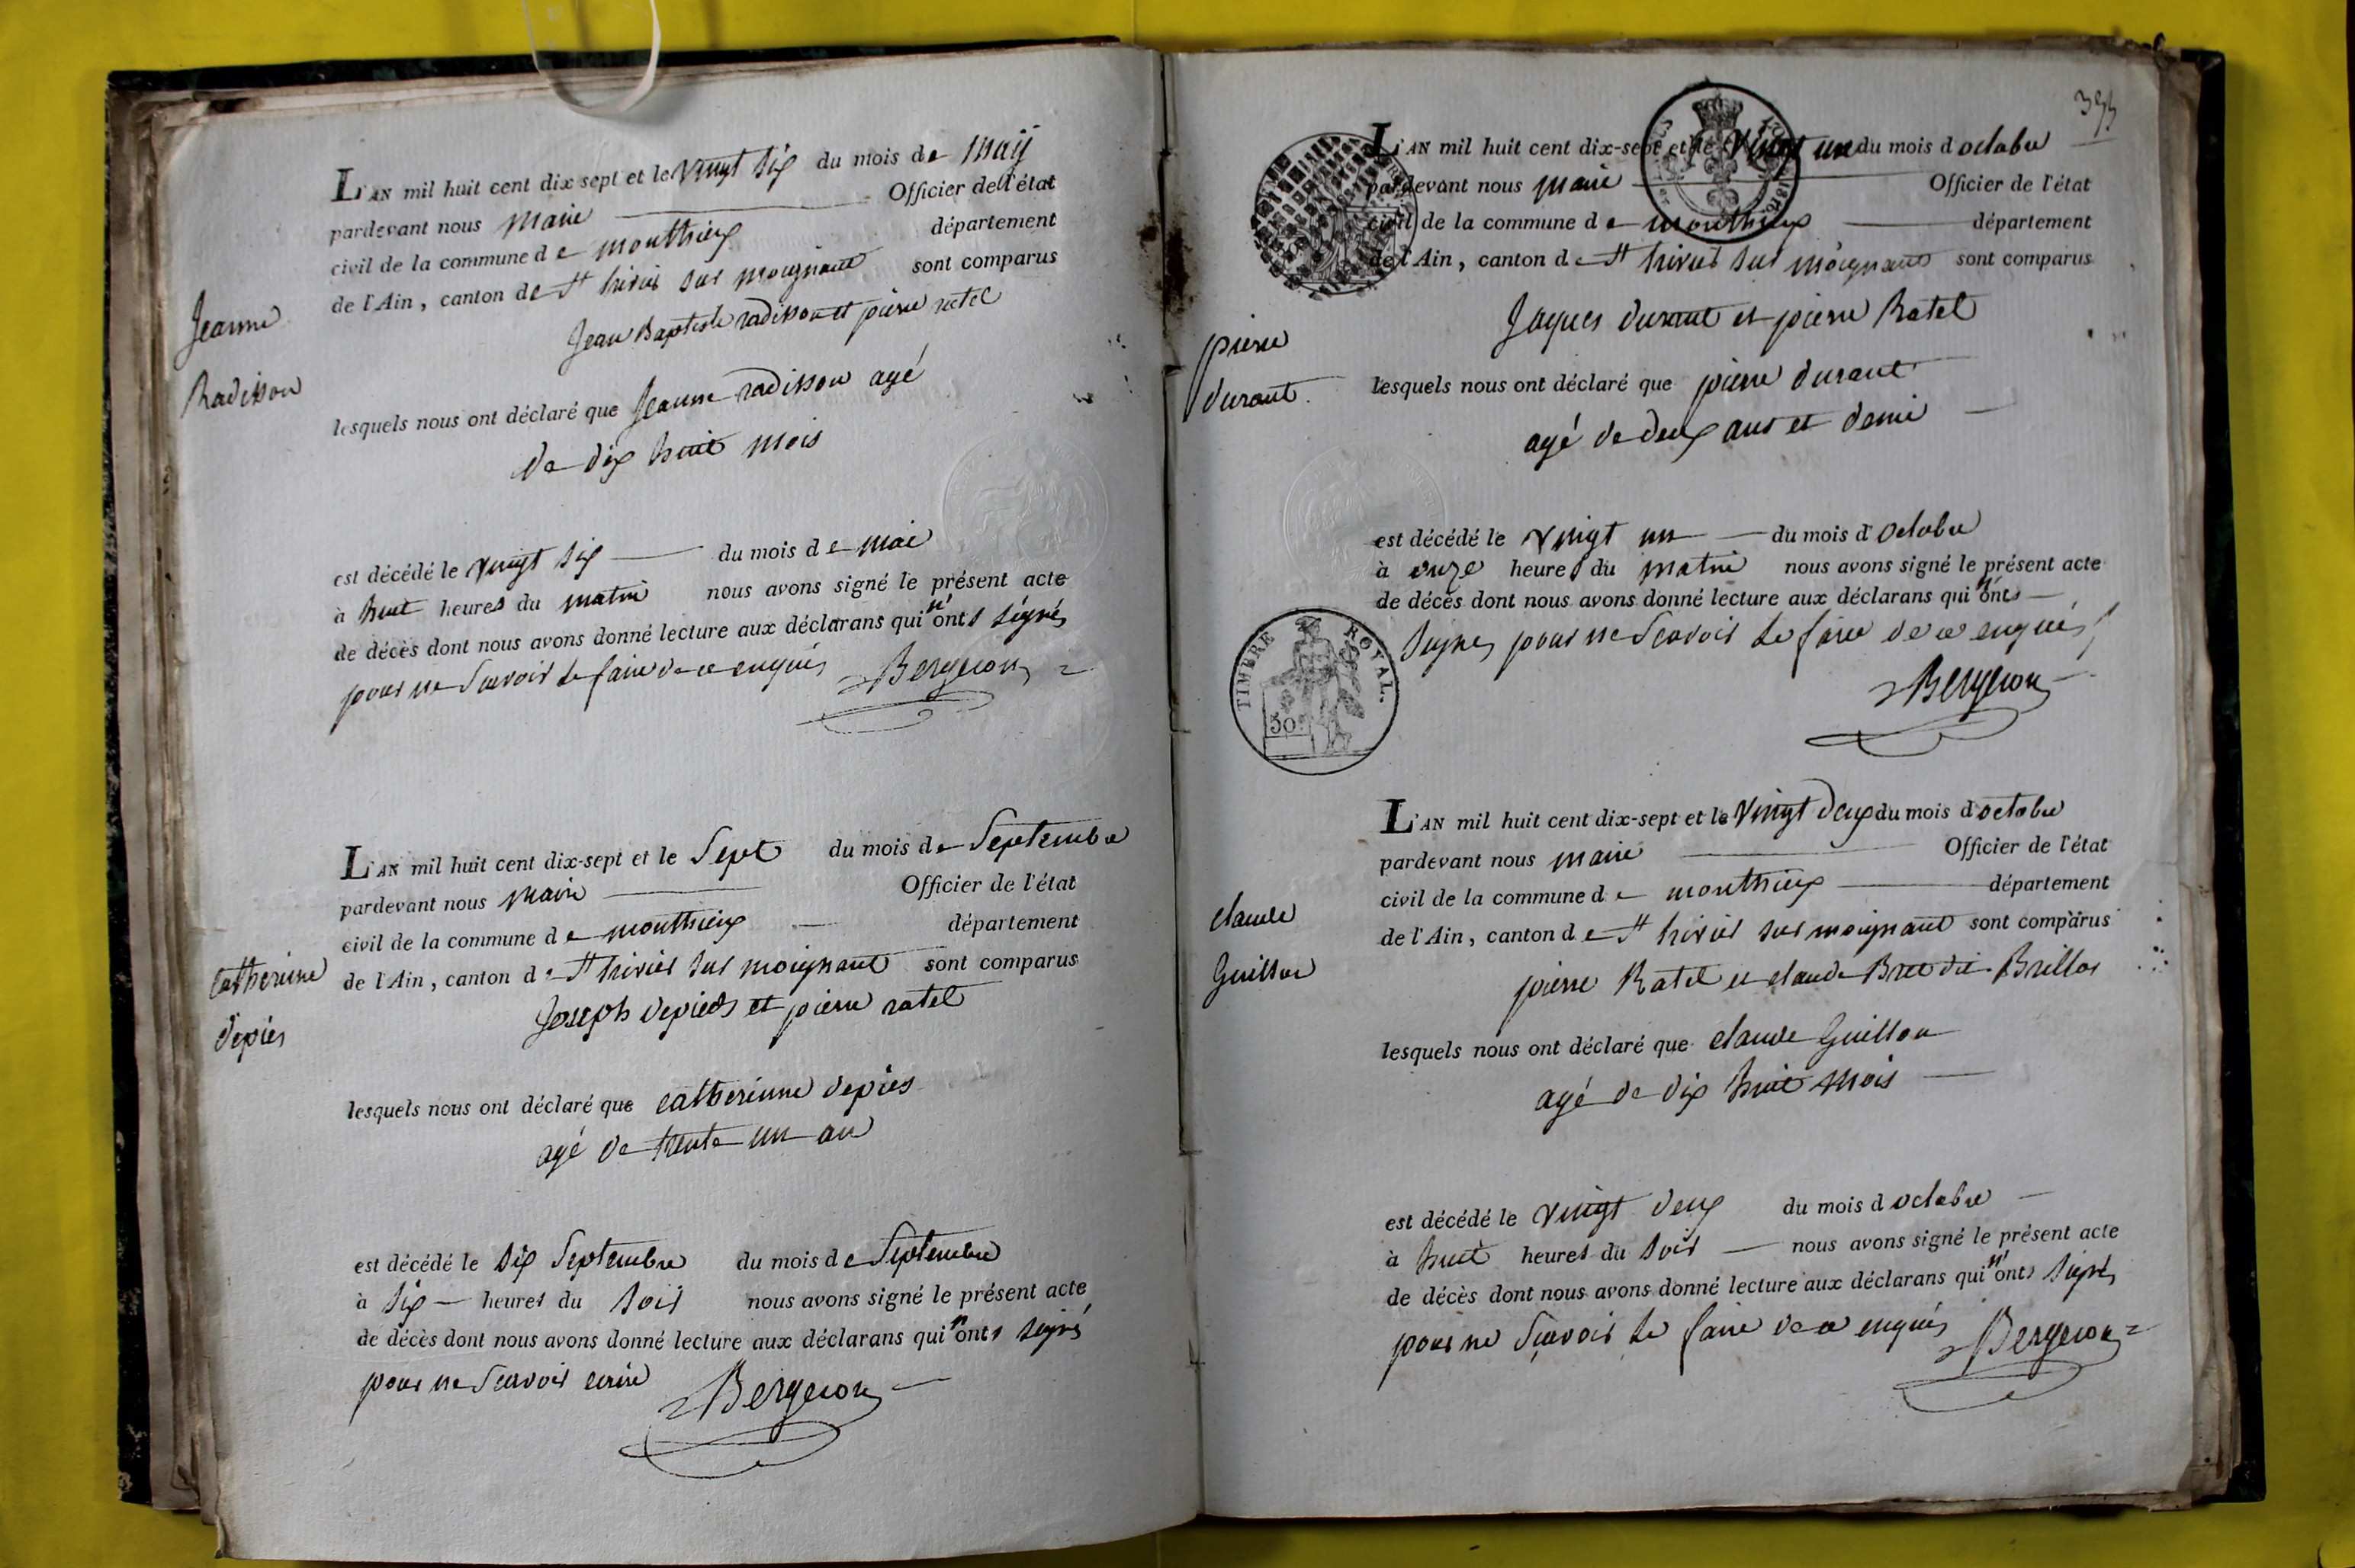 L'AN mil huit cent dix sept et le vingt six du mois de maij
pardevant nous maire Officier de l'état
civil de la commune de monthieux département
de l'Ain, canton de St trivier sur moignant sont comparus
Jean Baptiste radisson et pierre ratel
Jeanne
Radisson
lesquels nous ont déclaré que Jeanne radisson agé
de dix huit mois
est décédé le vingt six du mois de mai
à huit heures du matin nous avons signé le présent acte
de décès dont nous avons donné lecture aux déclarans qui n'onts signés
pour ne scavoir le faire de ce enquis Bergeron
L'AN mil huit cent dix-sept et le sept du mois de Septembre
pardevant nous maire Officier de l'état
civil de la commune de monthieux département
de l'Ain, canton de St trivier sur moignant sont comparus
Joseph depieds et pierre ratel
catherinne
depies
lesquels nous ont déclaré que catherinne depies
agé de trente un an
est décédé le six Septembre du mois de Septembre
à six heures du soir nous avons signé le présent acte
de décès dont nous avons donné lecture aux déclarans qui n'onts signé
pour ne scavoir ecrire Bergeron
L'AN mil huit cent dix-sept et le vingt un du mois d octobre
pardevant nous maire Officier de l'état
civil de la commune de monthieux département
de l'Ain, canton de St trivier sur moignant sont comparus
Jaques durant et pierre Ratel
pierre
durant.
lesquels nous ont déclaré que pierre durant
agé de deux ans et demi
est décédé le vingt un du mois d'octobre
à onze heures du matin nous avons signé le présent acte
de décès dont nous avons donné lecture aux déclarans qui n'onts
signés pour ne scavoir le faire de ce enquis
Bergeron
TIMBRE ROYAL.
50
L'AN mil huit cent dix-sept et le vingt deux du mois d octobre
pardevant nous maire Officier de l'état
civil de la commune de monthieux département
de l'Ain, canton de St trivier sur moignant sont comparus
pierre Ratel et claude Bret dit Brillat
claude
Guillon
lesquels nous ont déclaré que claude Guillon
agé de dix huit mois
est décédé le vingt deux du mois d octobre
à huit heures du soir nous avons signé le présent acte
de décès dont nous avons donné lecture aux déclarans qui n'onts signés
pour ne scavoir le faire de ce enquis Bergeron